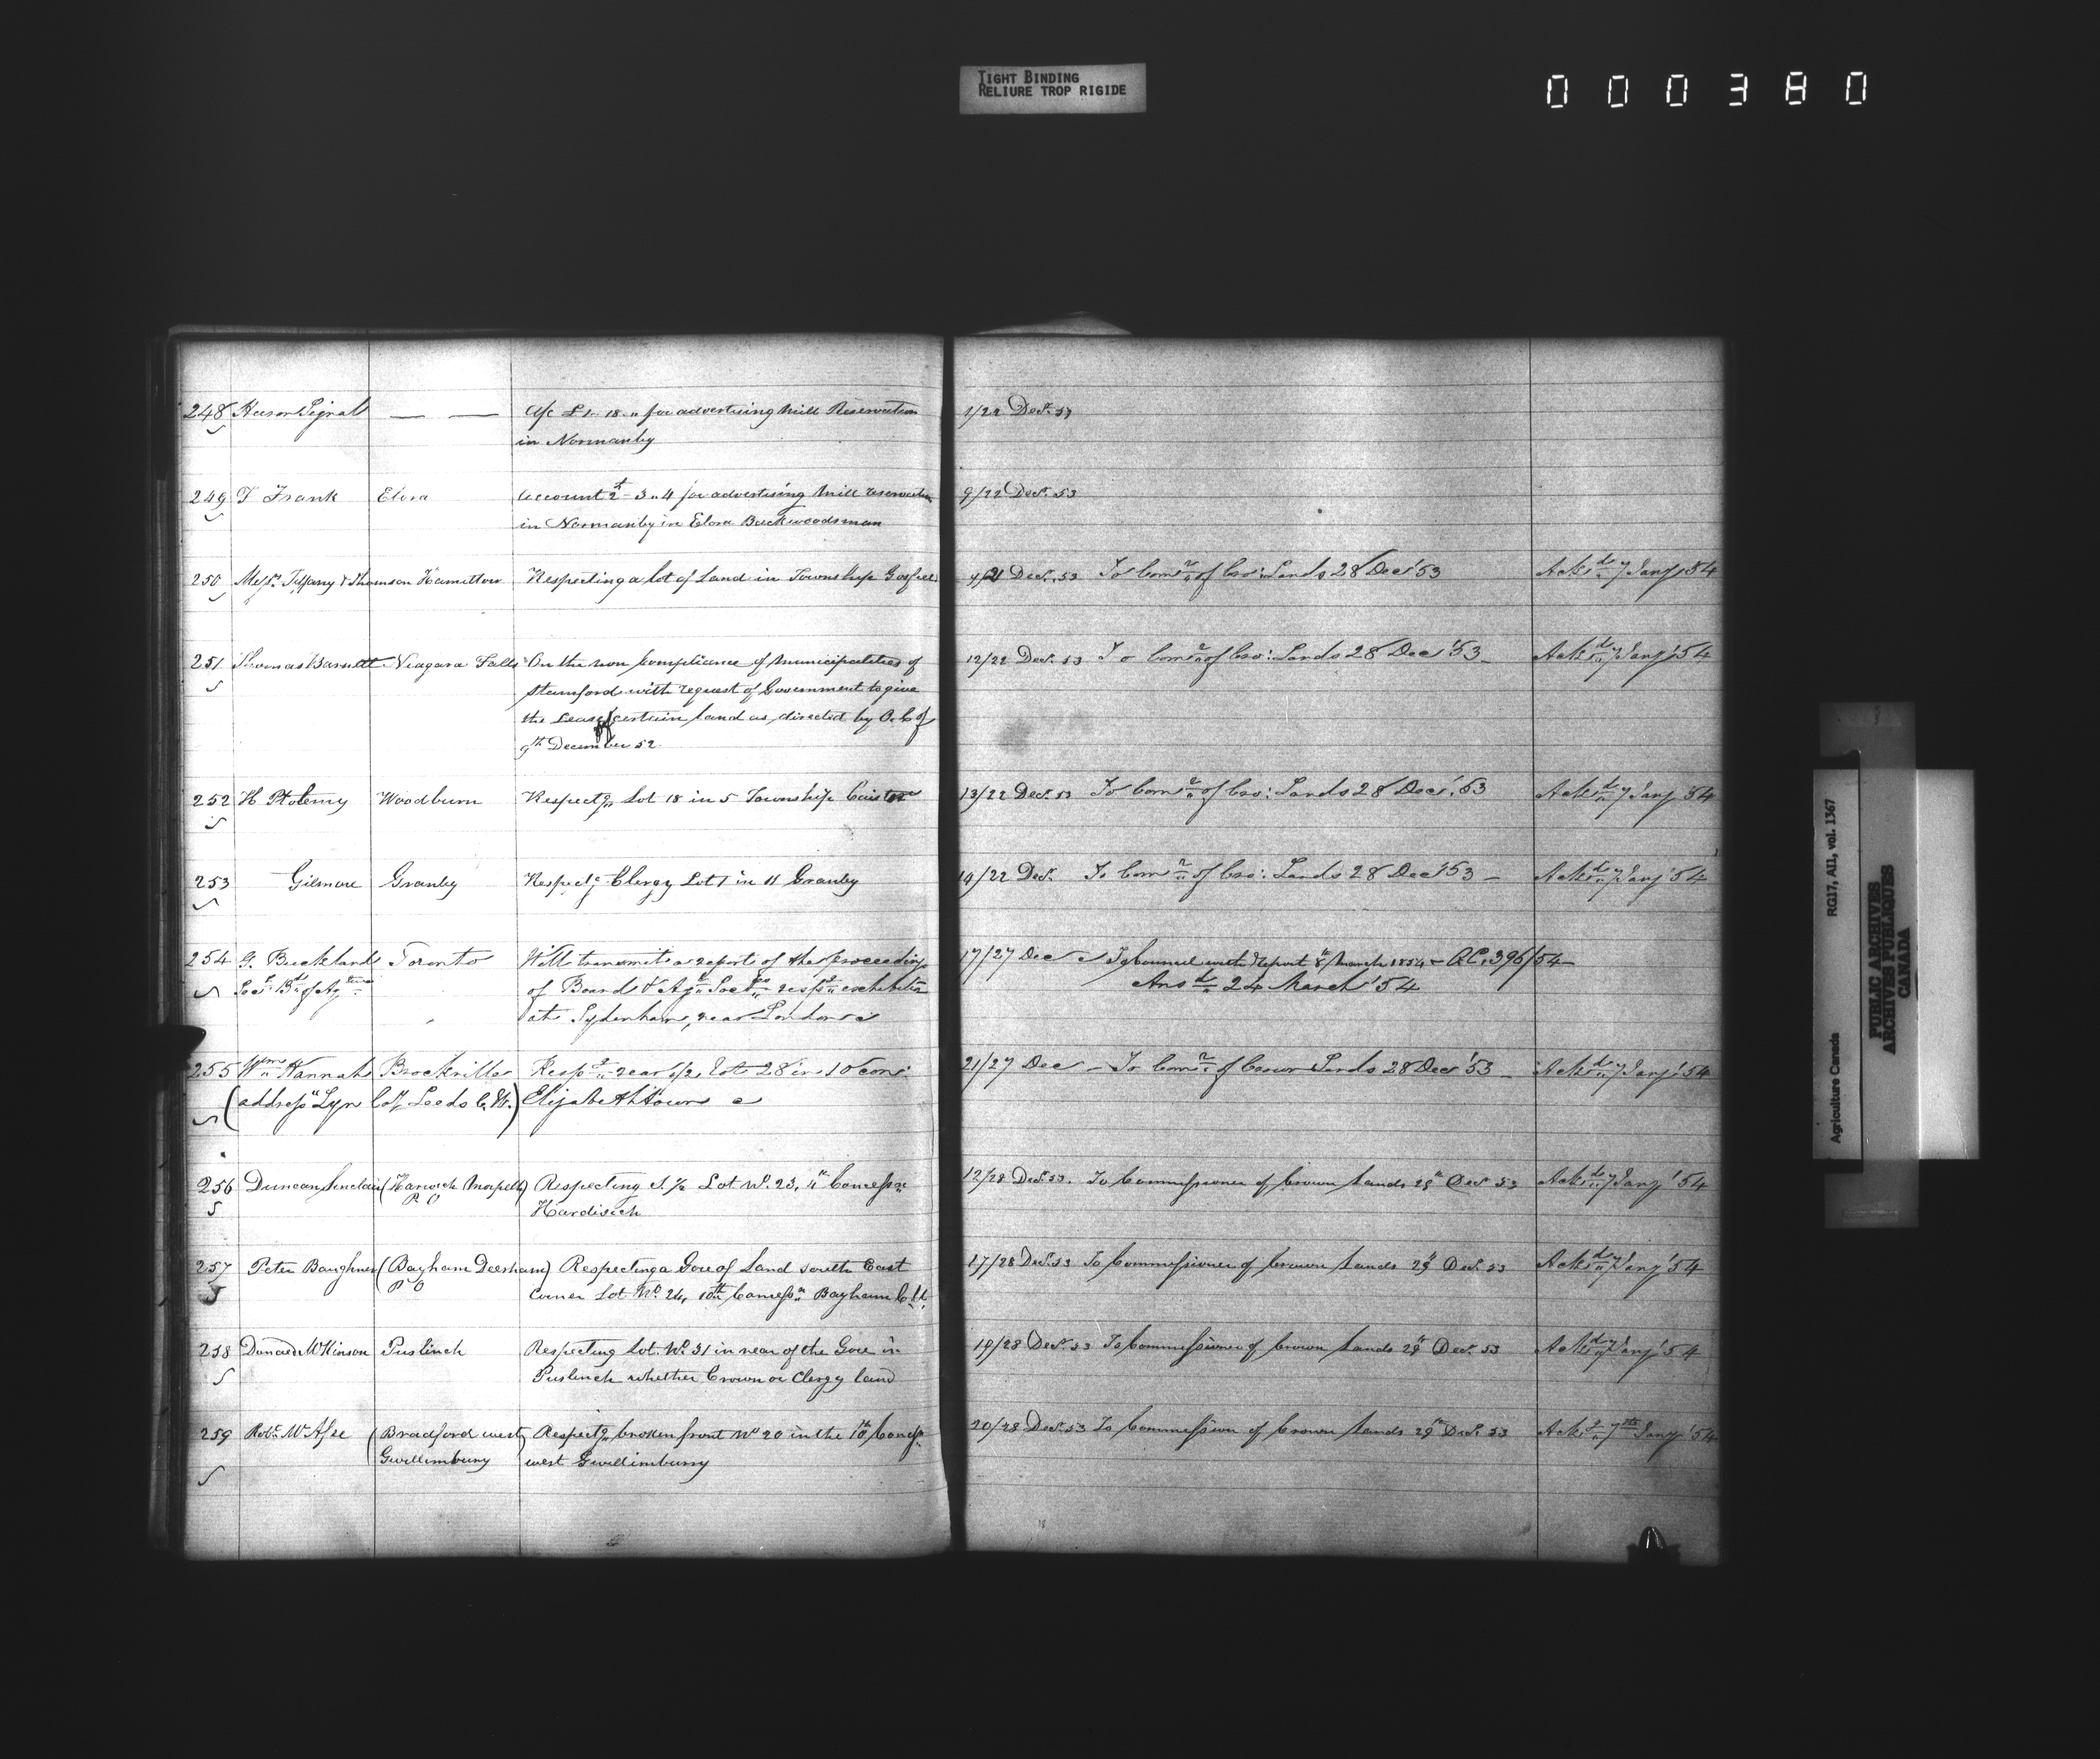 TIGHT BINDING
RELIURE TROP RIGIDE
000380
248 Huron Signal — — A/c £1. 18. " for advertising Mill Reservation 1/22 Decr. 53
in Normanby
249 T Frank Elora Account 2 - 3 " 4 for advertising Mill reservation 9/22 Decr. 53
in Normanby in Elora Backwoodsman
250 Messrs. Tiffany & Thomson Hamilton Respecting a lot of Land in Township Gosfield 4/21 Decr. 53 To Comr of Cro: Lands 28 Dec '53 Ackd 7 Jany '54
251 Thomas Barnett Niagara Falls On the non compliance of Municipalities of 12/22 Decr. 53 To Comr of Cro: Lands 28 Dec '53 - Ackd 7 Jany '54
Stamford with request of Government to give
the Lease of certain land as directed by O. C. of
9th December 52.
252 H Ptolemy Woodburn Respectg Lot 18 in 5 Township Caistor 13/22 Decr. 53 To Comr of Cro: Lands 28 Dec '53 Ackd 7 Jany '54
253 Gilmore Granby Respectg Clergy Lot 1 in 11 Granby 14/22 Decr. To Comr of Cro: Lands 28 Dec '53 - Ackd 7 Jany '54
254 G. Buckland Toronto Will transmit a report of the proceedings 17/27 Dec To Council with Report 8th March 1854 - O.C. 396/54 -
Secy Bd of Agture of Board & Agl Socies respg exhibition Ansd 24 March '54
at Sydenham, near London
255 Wm Hannah Brockville Respg rear 1/2 Lot 28 in 10 con: 21/27 Dec - To Comr of Crown Lands 28 Dec '53 - Ackd 7 Jany '54
(address Lyn Coty Leeds C. W.) Elizabethtown
256 Duncan Sinclair (Harwich Morpeth) Respecting S. 1/2 Lot No. 23, 4th Concessn 12/28 Decr. 53. To Commissioner of Crown Lands 29th Decr 53 Ackd 7 Jany '54
P O Hardwich
257 Peter Baughner (Bayham Deerham) Respecting a Gore of Land South East 17/28 Decr. 53 To Commissioner of Crown Lands 29th Decr. 53 Ackd 7 Jany '54
P O Corner Lot No. 24, 10th Concessn Bayham C. W.
258 Donald McKinson Puslinch Respecting Lot. No. 31 in rear of the Gore in 19/28 Decr. 53 To Commissioner of Crown Lands 29th Decr. 53 Ackd 7 Jany '54
Puslinch whether Crown or Clergy land
259 Robt. McAfee (Bradford west Respectg broken front No 20 in the 10th Concessn 20/28 Decr. 53 To Commission of Crown Lands 29th Decr. 53 Ackd 7th Jany '54
Gwillimbury west Gwillimbury
Agriculture Canada RG17, AII, vol. 1367
PUBLIC ARCHIVES
ARCHIVES PUBLIQUES
CANADA